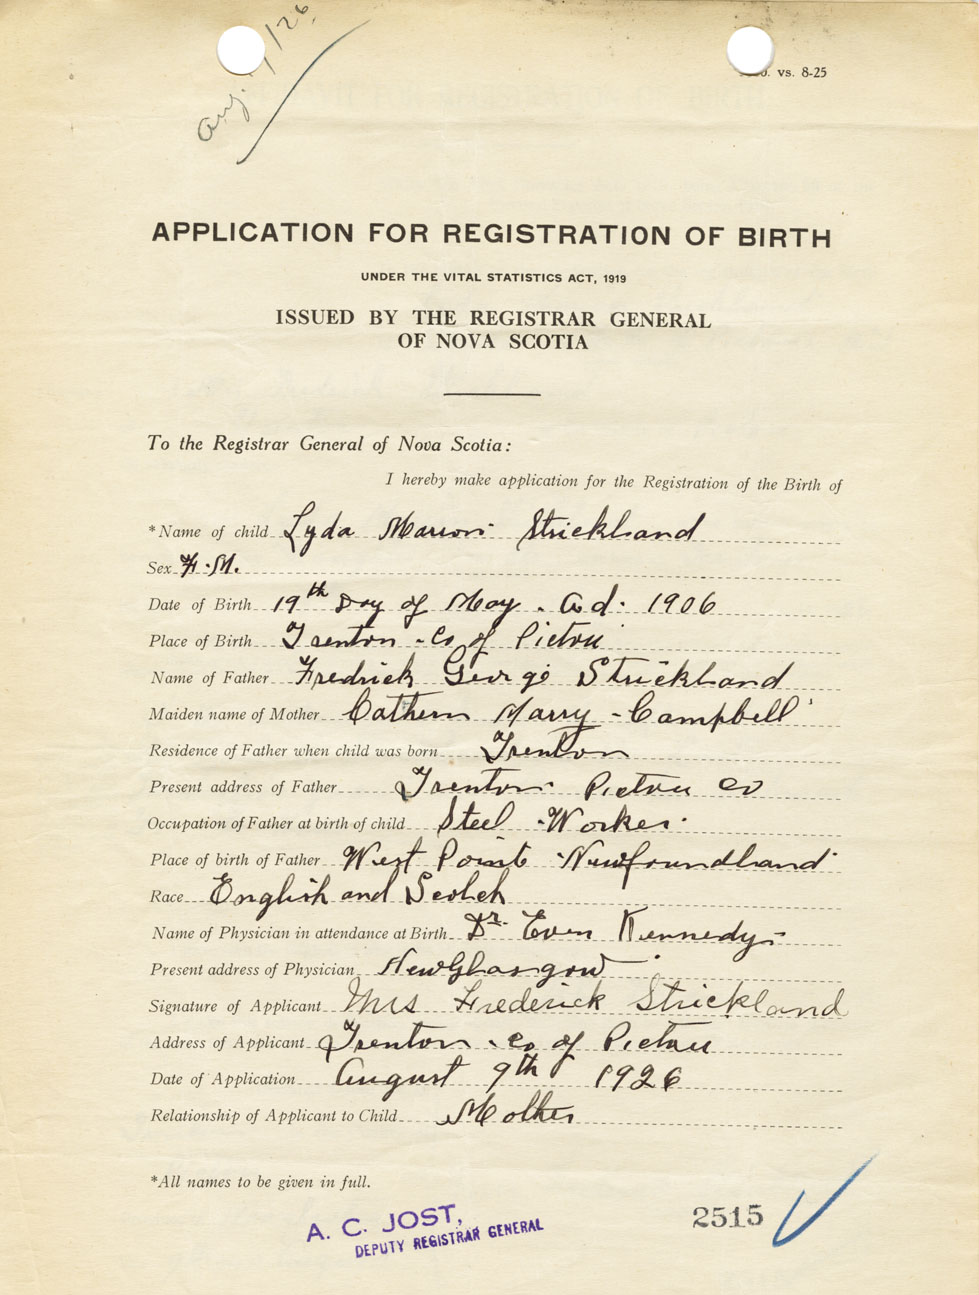 Aug. /26
vs. 8-25
APPLICATION FOR REGISTRATION OF BIRTH
UNDER THE VITAL STATISTICS ACT, 1919
ISSUED BY THE REGISTRAR GENERAL
OF NOVA SCOTIA
To the Registrar General of Nova Scotia:
I hereby make application for the Registration of the Birth of
*Name of child Lyda Marion Strickland
Sex F. M.
Date of Birth 19th Day of May. A.d. 1906
Place of Birth Trenton - Co of Pictou
Name of Father Fredrick George Strickland
Maiden name of Mother Cathern Marry - Campbell
Residence of Father when child was born Trenton
Present address of Father Trenton Pictou Co
Occupation of Father at birth of child Steel - Worker.
Place of birth of Father West Point Newfoundland
Race English and Scotch
Name of Physician in attendance at Birth Dr. Even Kennedy-
Present address of Physician New Glasgow
Signature of Applicant Mrs Frederick Strickland
Address of Applicant Trenton - Co of Pictou
Date of Application August 9th 1926
Relationship of Applicant to Child Mother
*All names to be given in full.
A. C. JOST,
DEPUTY REGISTRAR GENERAL
2515